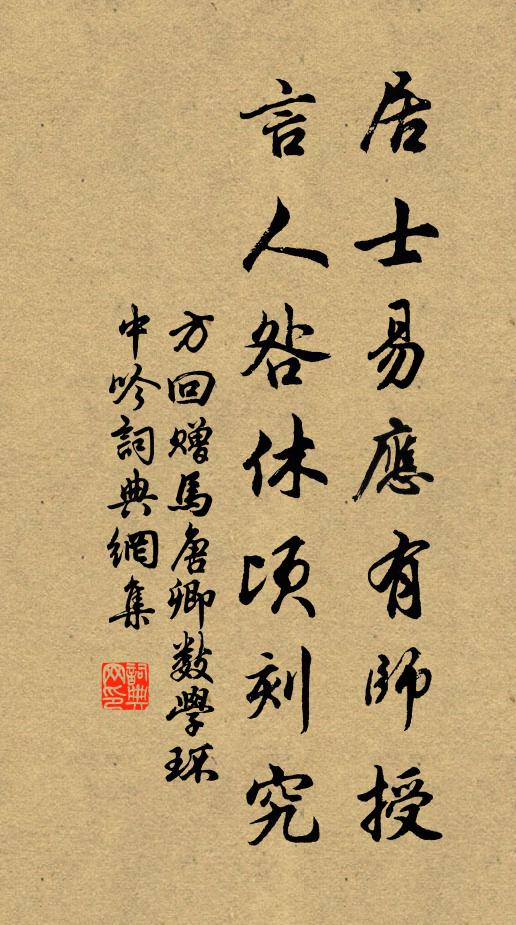 居士易應有師授
言人咎休頃刻究
方回贈馬唐卿數學環
中吟詞典網集
詞典網印